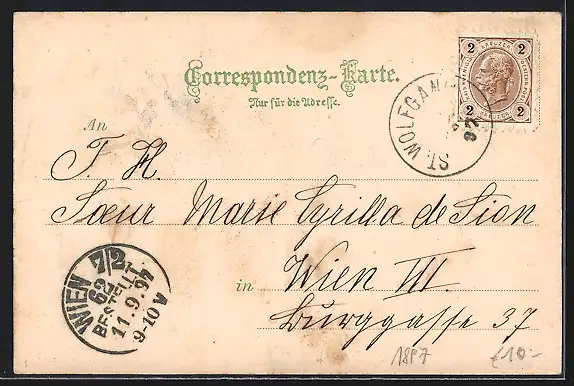 Correspondenz-Karte.
Nur für die Adresse.
2 KREUZER 2
2 KREUZER 2
ST. WOLFGANG
97
An
T. H.
Sœur Marie Cyrilla de Sion
in Wien III.
Burggasse 37
WIEN 7/2
62
BESTELLT
11.9.97
9-10 V
1897
€10-